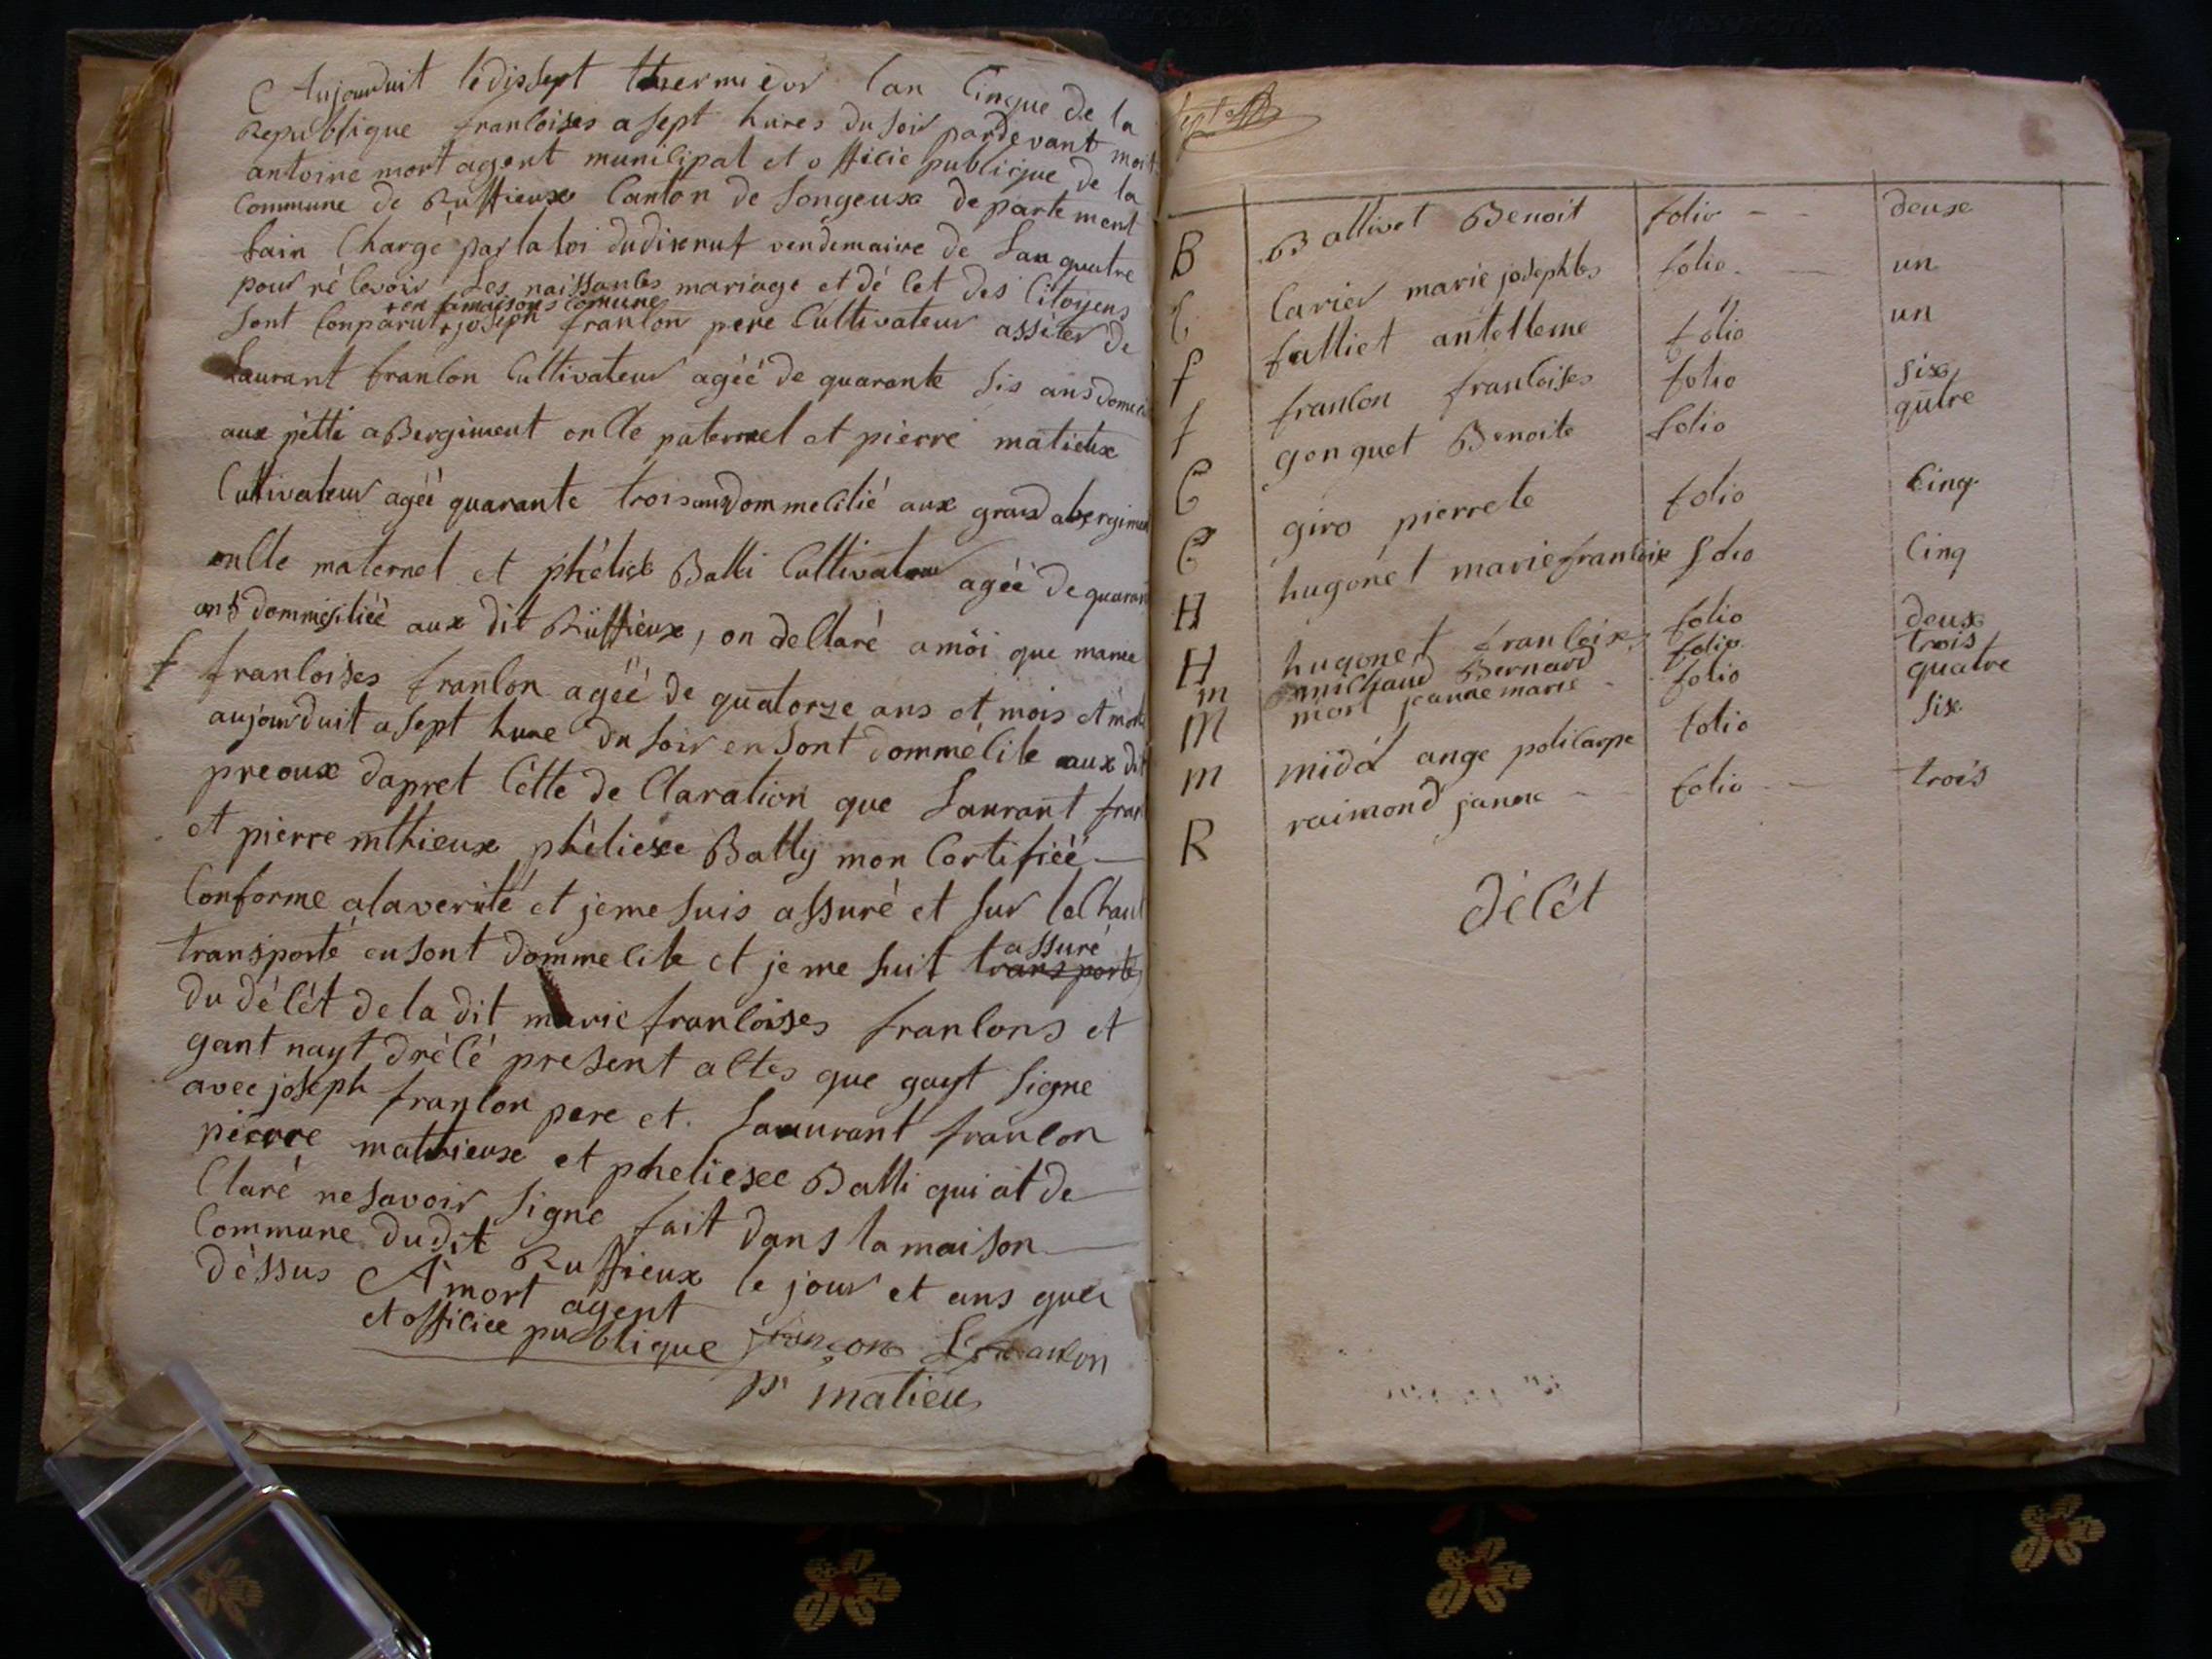 Aujourduit le dissept thermidor lan Cinque de la
Republique francoises a sept hures du soir pardevant moit
antoine mort agent municipal et officie publicque de la
Commune de Ruffieux Canton de Songeux departement
Lain Chargé par la loi dudixnuf vendemaire de Lan quatre
pour ré cevoir Les naissances mariage et dé cet des Citoyens
+ en lamaisons comune
sont Conparut + joseph francon pere Cultivateur assiter de
Laurant francon Cultivateur agéé de quarante sis ans
aux petti aBergiment oncle paternel et pierre matieux
Cultivateur agéé quarante trois ans dommecilié aux grand abergiment
oncle maternel et Balli Cultivateur agéé de quarant
ans dommesiliéé aux dit Ruffieux, on declaré a moi que marie
f francoises francon agéé de quatorze ans et mois et morte
aujourduit a sept hure du soir en sont dommécile aux dit
preoux dapret Cétte de Claration que Laurant fran
et pierre mthieux phéliexe Bally mon Certifiéé
Conforme alaverité et jeme suis assuré et sur le Chan
assuré
transporté en sont dommecile et je me suit transporté
du décét de la dit marie francoises francons et
gant nayt drécé present actes que gayt signe
avec joseph francon pere et Lauurant francon
pierre mathieuxe et pheliexee Balli qui at de
Claré nesavoir signe fait dans la maison
Commune dudit Ruffieux le jour et ans que
déssus A mort agent
et officiee publique françon L francon
pr matieu
B Ballivet Benoit folio deuxe
C Carier marie josephtes folio un
f falliet antelleme folio un
f francon francoises folio six
G gonguet Benoite folio qutre
G giro pierrete folio Cinq
H hugonet marie francoise folio Cinq
H hugonet francoixe folio deux
m michaud Bernard folio trois
M mort jeanne marie folio quatre
m ange policarpe folio six
R raimond janne folio trois
décét